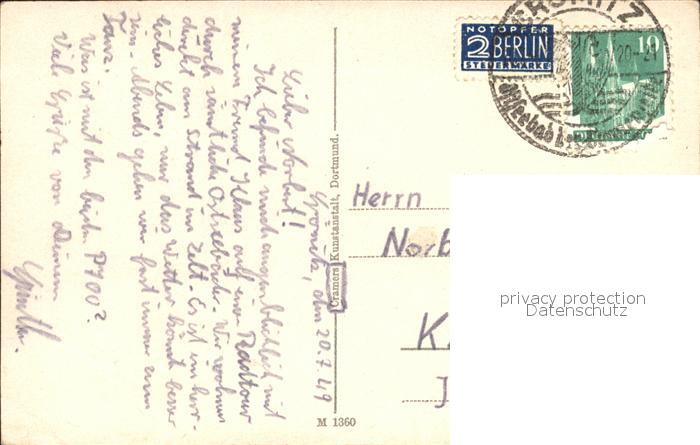 NOTOPFER
2 BERLIN
STEUERMARKE
10
GRÖMITZ
20.-21
Ostseebad
Grömitz, den 20.7.49
Lieber Norbert!
Ich befinde mich augenblicklich mit
meinem Freund Klaus auf einer Radtour
durch sämtliche Ostseebäder. Wir wohnen
direkt am Strand im Zelt. Es ist ein herr-
liches Leben, nur das Wetter könnte besser
sein. Abends gehen wir fast immer zum
Tanz.
Was ist mit den besten P700?
Viele Grüße von Deinem
Günther.
Cramers Kunstanstalt, Dortmund.
M 1360
Herrn
Norb
K
J
privacy protection
Datenschutz